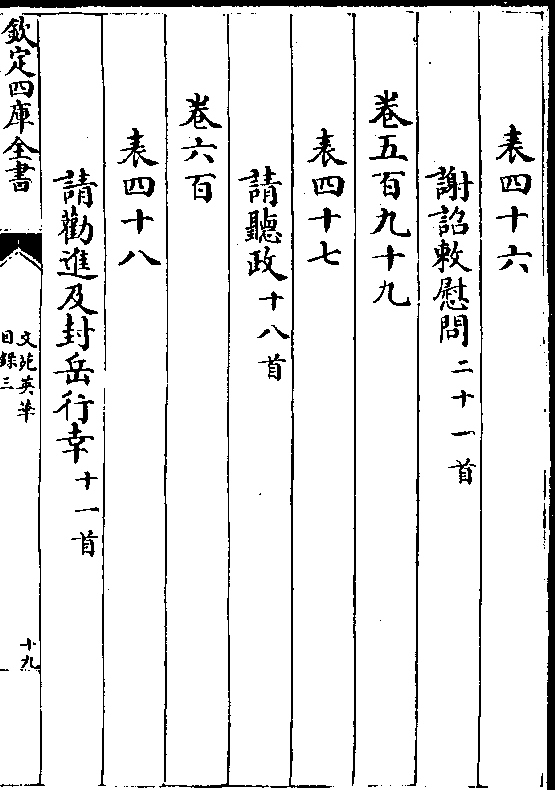 表四十六
謝詔敕慰問二十一首
卷五百九十九
表四十七
請聽政十八首
卷六百
表四十八
請勸進及封岳行幸十一首
欽定四庫全書
文苑英華
目錄三
十九